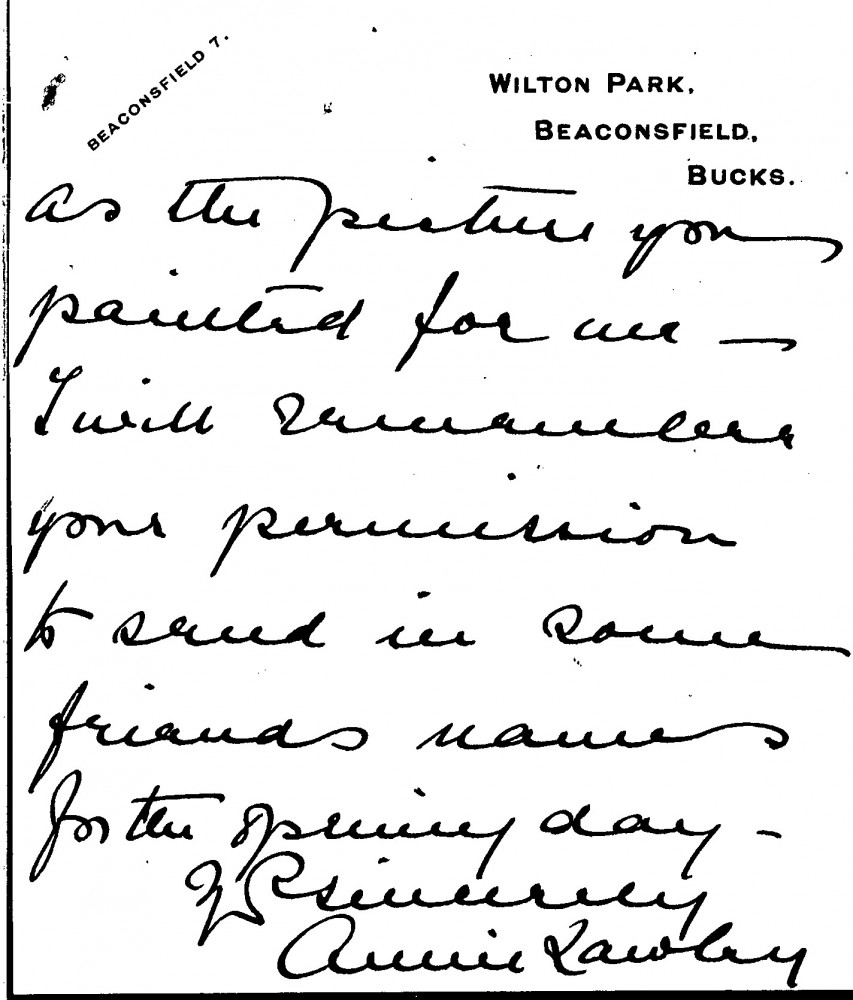 BEACONSFIELD 7.
WILTON PARK,
BEACONSFIELD,
BUCKS.
as the picture you
painted for me —
I will remember
your permission
to send in some
friends names
for the opening day –
Yrs sincerely
Annie Lawley